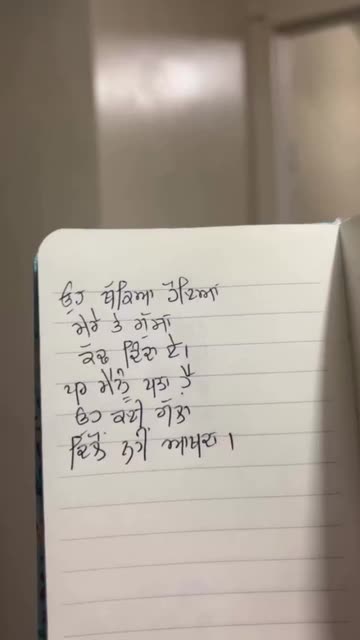 ਉਹ ਥੱਕਿਆ ਹੋਇਆ
ਮੇਰੇ ਤੇ ਗੁੱਸਾ
ਕੱਢ ਦਿੰਦਾ ਏ।
ਪਰ ਮੈਨੂੰ ਪਤਾ ਹੈ
ਉਹ ਕਈ ਗੱਲਾਂ
ਦਿਲੋਂ ਨਹੀਂ ਆਖਦਾ।